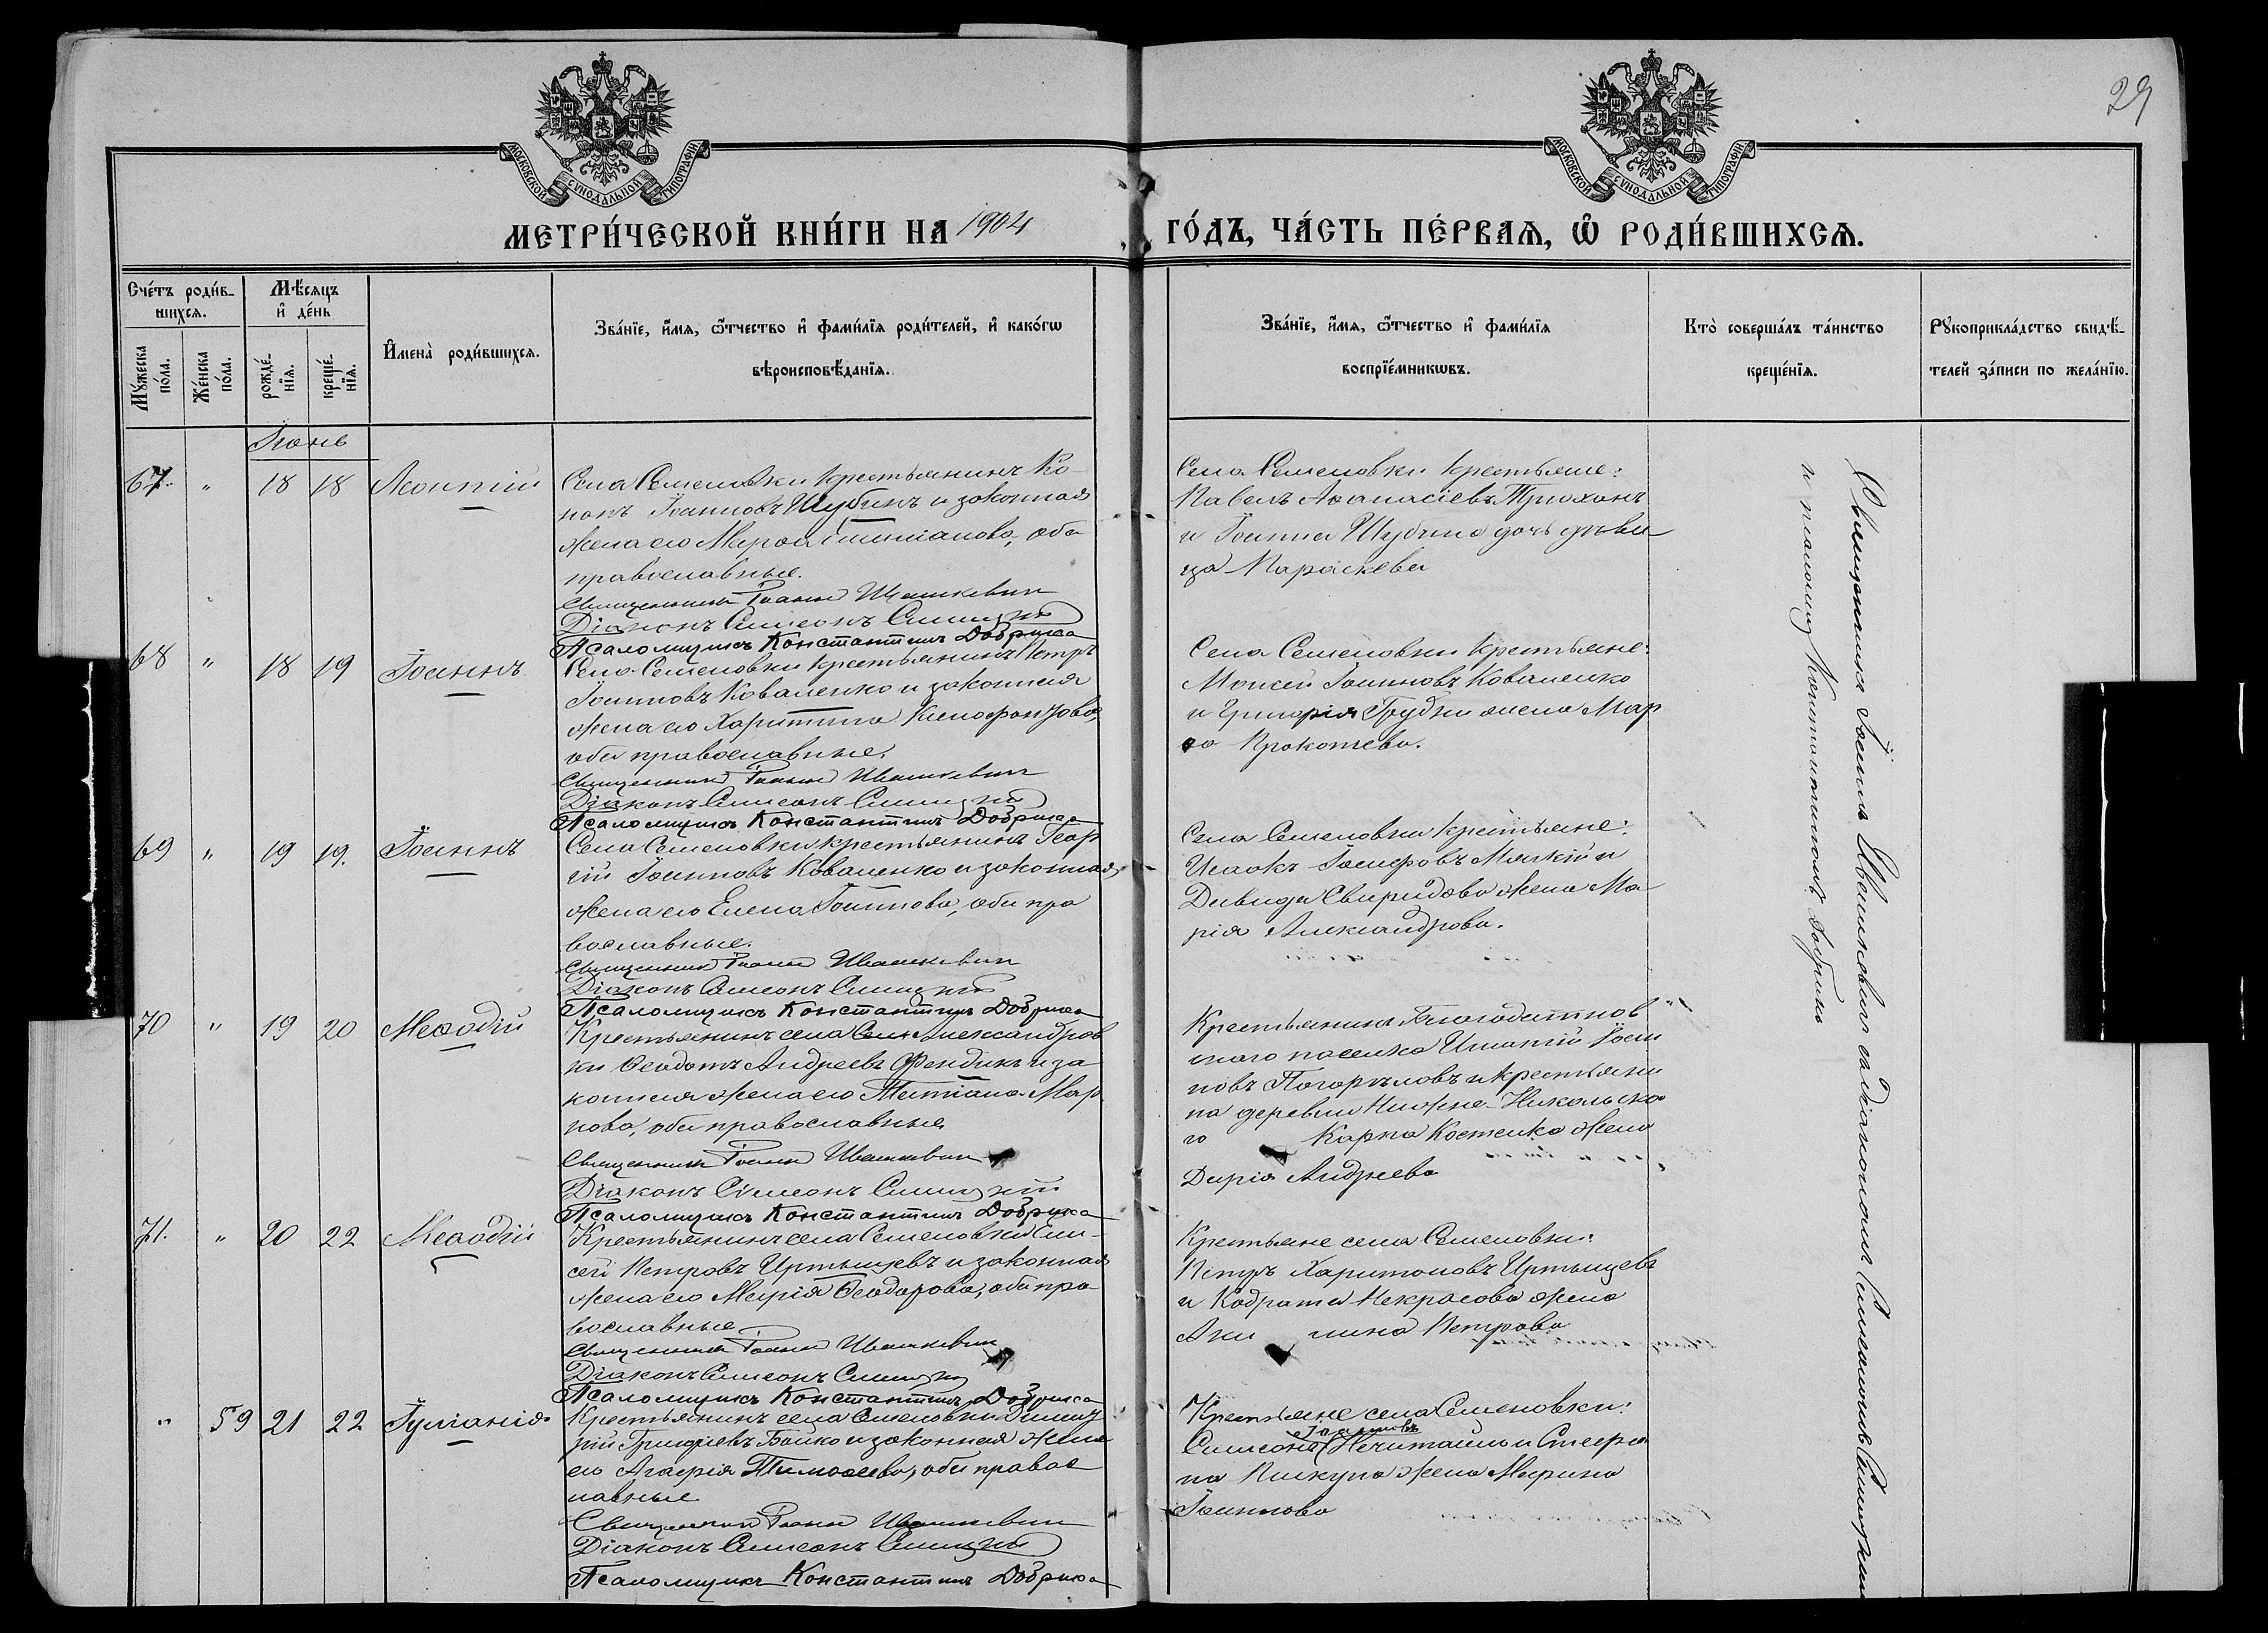 29
МОСКОВСКОЙ СѴНОДАЛЬНОЙ ТИПОГРАФІИ
МОСКОВСКОЙ СѴНОДАЛЬНОЙ ТИПОГРАФІИ
МЕТРИ́ЧЕСКОЙ КНИ́ГИ НА 1904 ГО́ДЪ, ЧА́СТЬ ПЕ́РВАѦ, Ѡ҆ РОДИ́ВШИХСѦ.
Сче́тъ роди́вшихсѧ.
Мꙋ́жеска по́ла.
Же́нска по́ла.
Мѣ́сѧцъ и҆ де́нь
рожде́нїѧ.
креще́нїѧ.
И҆мена̀ роди́вшихсѧ.
Зва́нїе, и҆́мѧ, ѻ҆́тчество и҆ фами́лїѧ роди́телей, и҆ како́гѡ
вѣроисповѣ́данїѧ.
Зва́нїе, и҆́мѧ, ѻ҆́тчество и҆ фами́лїѧ
воспрїе́мникѡвъ.
Кто̀ соверша́лъ та́инство
креще́нїѧ.
Рꙋкоприкла́дство свидѣ́-
телей за́писи по жела́нїю.
Іюнь
67. " 18 18 Леонтій
Села Семеновки крестьянинъ Ко-
нонъ Іоанновъ Шубинъ и законная
жена его Марѳа Стиліанова, оба
православные.
Священникъ Іоаннъ Ивашкевич
Діаконъ Симеонъ Синицкій
Псаломщикъ Константинъ Добрика
Села Семеновки крестьяне:
Павелъ Аѳанасіевъ Трюханъ
и Іоанна Шубина дочь дѣви-
ца Параскева
68 " 18 19 Іоаннъ
Села Семеновки крестьянинъ Петръ
Іоанновъ Коваленко и законная
жена его Харитина Ксенофонтова,
оба православные.
Священникъ Іоаннъ Ивашкевич
Діаконъ Симеонъ Синицкій
Псаломщикъ Константинъ Добрика
Села Семеновки крестьяне:
Моисей Іоанновъ Коваленко
и Григорія Грудки жена Мар
ѳа Прокопіева.
69 " 19 19. Іоаннъ
Села Семеновки крестьянинъ Геор
гій Іоанновъ Коваленко и законная
жена его Елена Іоаннова, оба пра
вославные.
Священникъ Іоаннъ Ивашкевич
Діаконъ Симеонъ Синицкій
Псаломщикъ Константинъ Добрика
Села Семеновки крестьяне:
Исаакъ Іосифовъ Мягкій и
Давида Свиридова жена Ма-
рія Александрова.
70 " 19 20 Меѳодій
Крестьянинъ села Александров
ки Ѳеодотъ Андреевъ Фендикъ и за
конная жена его Татіана Мар
кова, оба православные
Священникъ Іоаннъ Ивашкевич
Діаконъ Симеонъ Синицкій
Псаломщикъ Константинъ Добрика
Крестьянинъ Благодатнов
скаго поселка Игнатій Іоан
новъ Погорѣловъ и крестьяни
на деревни Нижне-Никольска
го Карпа Костенка жена
Дарія Андреева
71. " 20 22 Меѳодій
Крестьянинъ села Семеновки Ели-
сей Петровъ Иртыщевъ и законная
жена его Марія Ѳеодорова, оба пра
вославные
Священникъ Іоаннъ Ивашкевич
Діаконъ Симеонъ Синицкій
Псаломщикъ Константинъ Добрика
Крестьяне села Семеновки:
Петръ Харитоновъ Иртыщевъ
и Кодрата Некрасова жена
Аки лина Петрова
" 59 21 22 Іуліанія
Крестьянинъ села Семеновки Димит
рій Григоріевъ Бойко и законная жена
его Агаѳія Тимоѳеева, оба правос
лавные
Священникъ Іоаннъ Ивашкевич
Діаконъ Симеонъ Синицкій
Псаломщикъ Константинъ Добрика
Крестьяне села Семеновки:
Іоанновъ
Симеонъ Нечитайло и Стефа
на Пикула жена Марина
Іоаннова
Священникъ Іоаннъ Ивашкевич съ діакономъ Симеономъ Синицкимъ
и псаломщ. Константиномъ Добрика